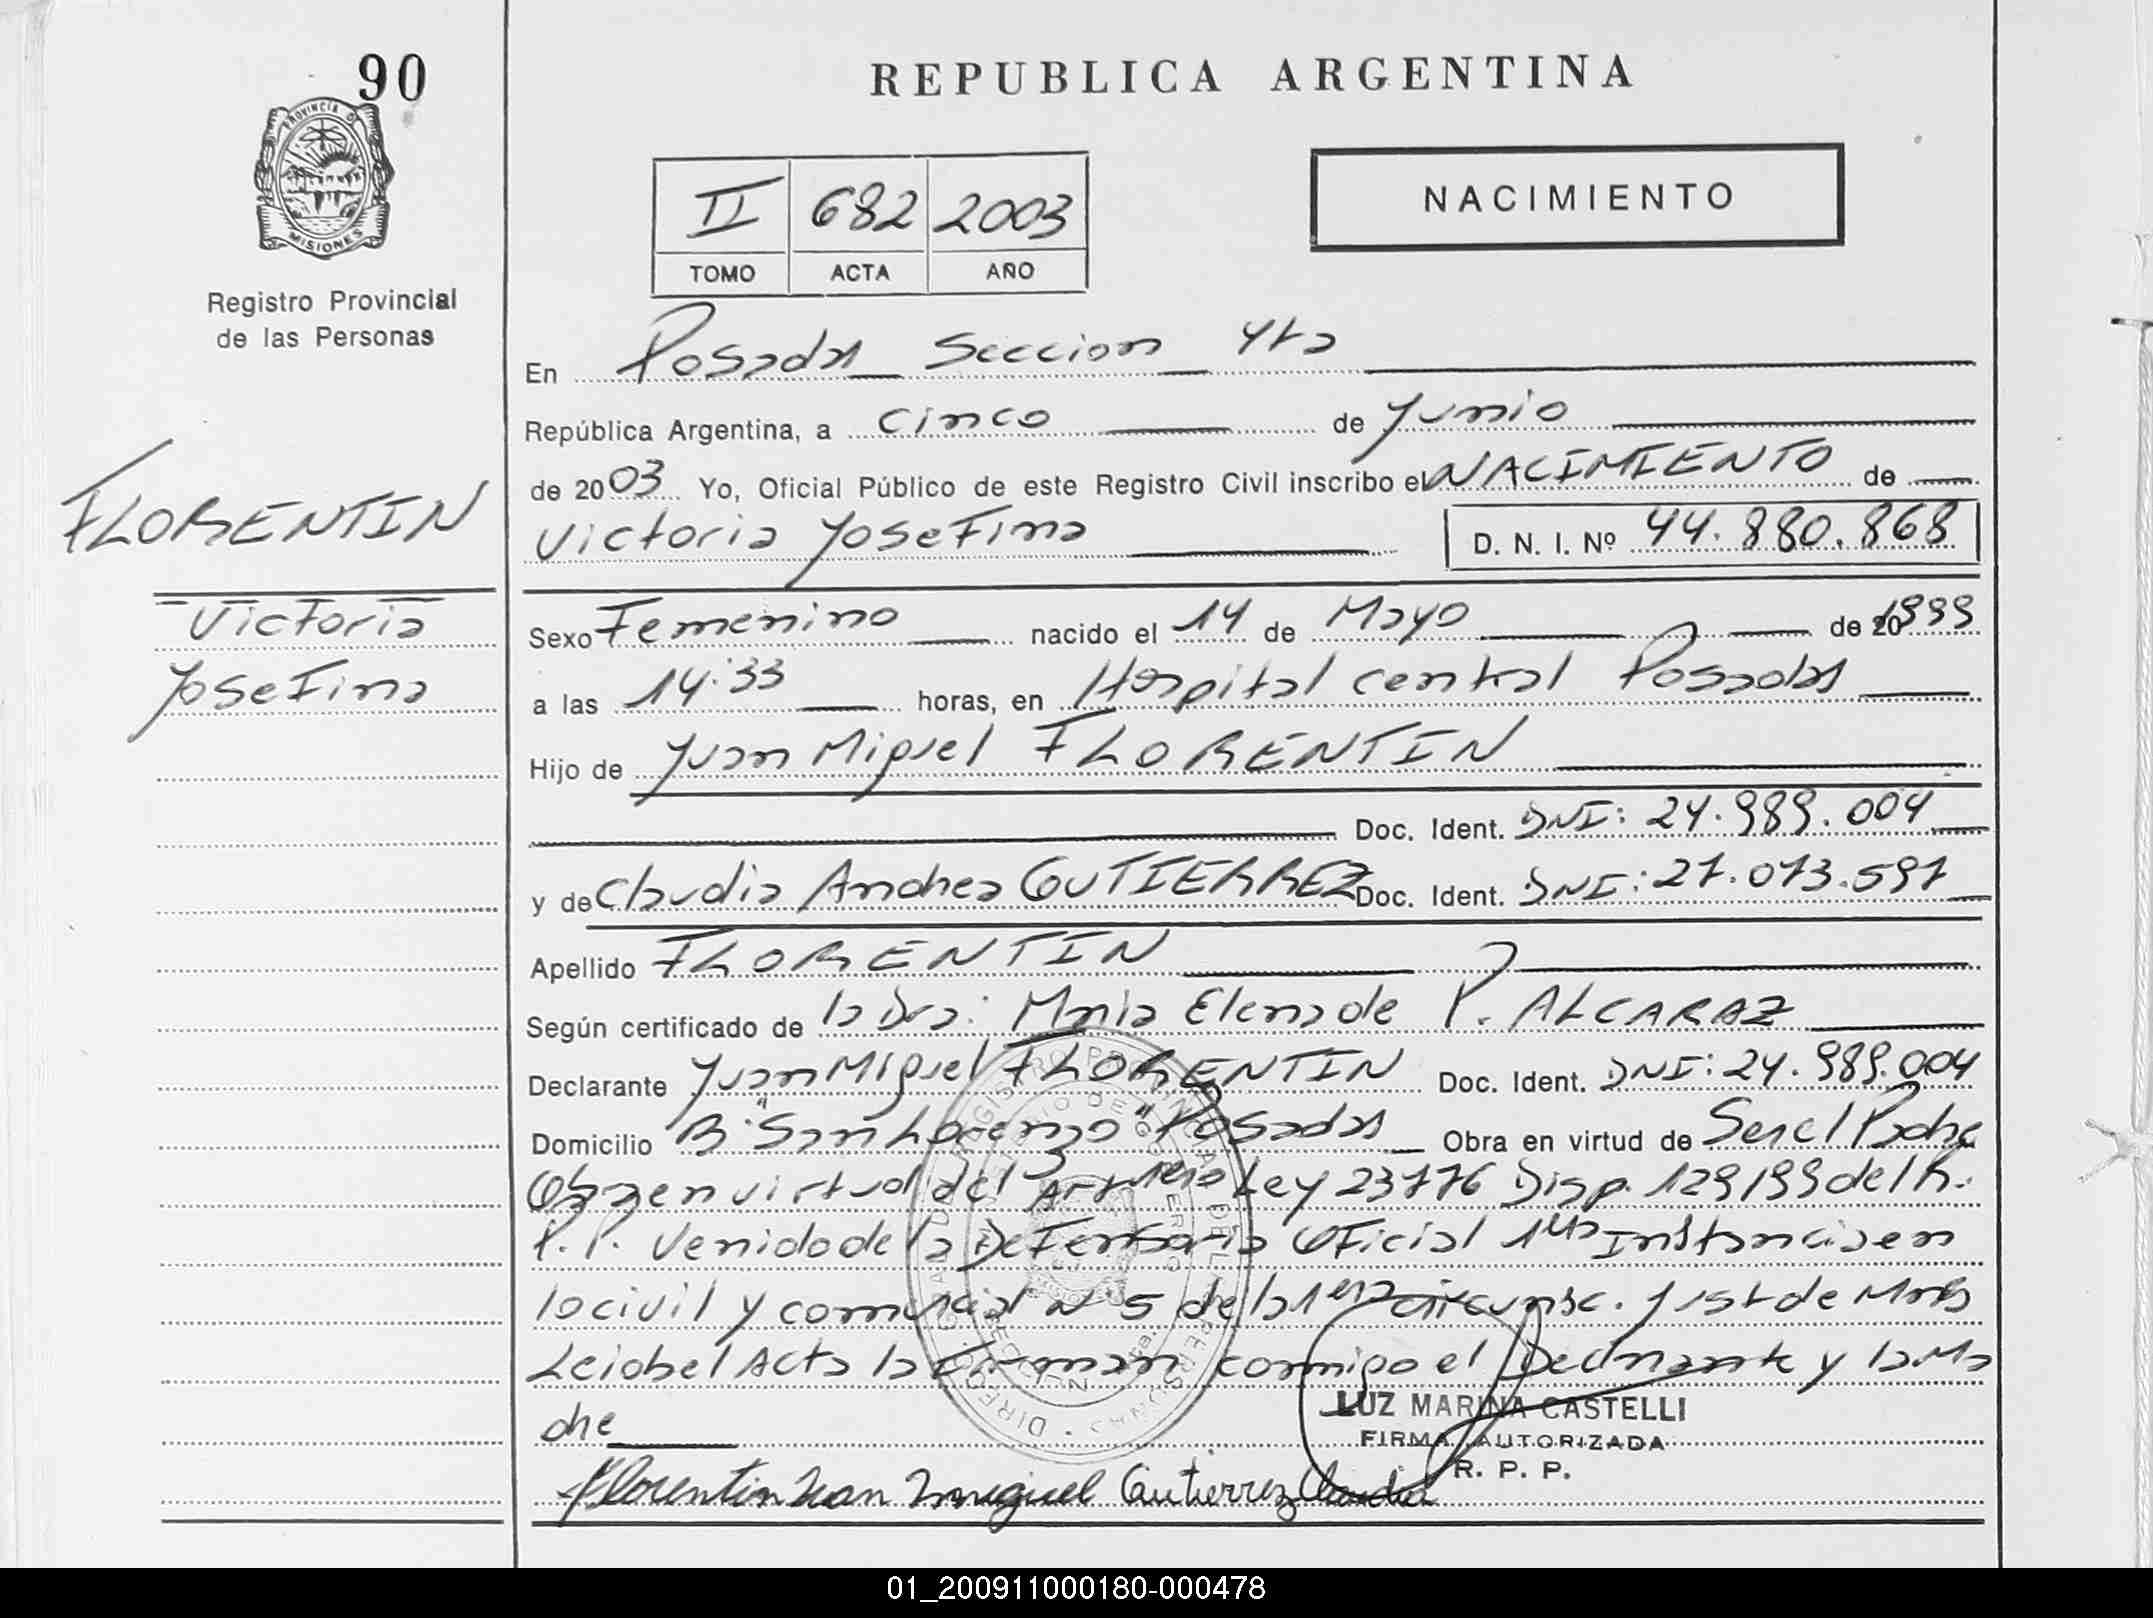 90
PROVINCIA DE
MISIONES
Registro Provincial
de las Personas
FLORENTIN
Victoria
Josefina
REPUBLICA ARGENTINA
II 682 2003
TOMO ACTA AÑO
NACIMIENTO
En Posadas Seccion 4ta
República Argentina, a cinco de Junio
de 2003 Yo, Oficial Público de este Registro Civil inscribo el NACIMIENTO de
Victoria Josefina D. N. I. Nº 44.880.868
Sexo Femenino nacido el 14 de Mayo de 1999
a las 14:33 horas, en Hospital Central Posadas
Hijo de Juan Miguel FLORENTIN
Doc. Ident. DNI: 24.989.004
y de Claudia Andrea GUTIERREZ Doc. Ident. DNI: 27.073.597
Apellido FLORENTIN
Según certificado de la Dra: Maria Elena de P. ALCARAZ
Declarante Juan Miguel FLORENTIN Doc. Ident. DNI: 24.989.004
Domicilio B "San Lorenzo" Posadas Obra en virtud de Ser el Padre
Obra en virtud del Art Ley 23776 Disp. 129/99 del R.
P. P. Venido de la Defensoria Oficial 1era Instancia en
lo civil y comercial Nº 5 de la 1era circunsc. Just de Mnes
Leida el Acta la Firman conmigo el Declarante y la Ma
dre
LUZ MARINA CASTELLI
FIRMA AUTORIZADA
R. P. P.
Florentin Juan Miguel Gutierrez Claudia
01_200911000180-000478